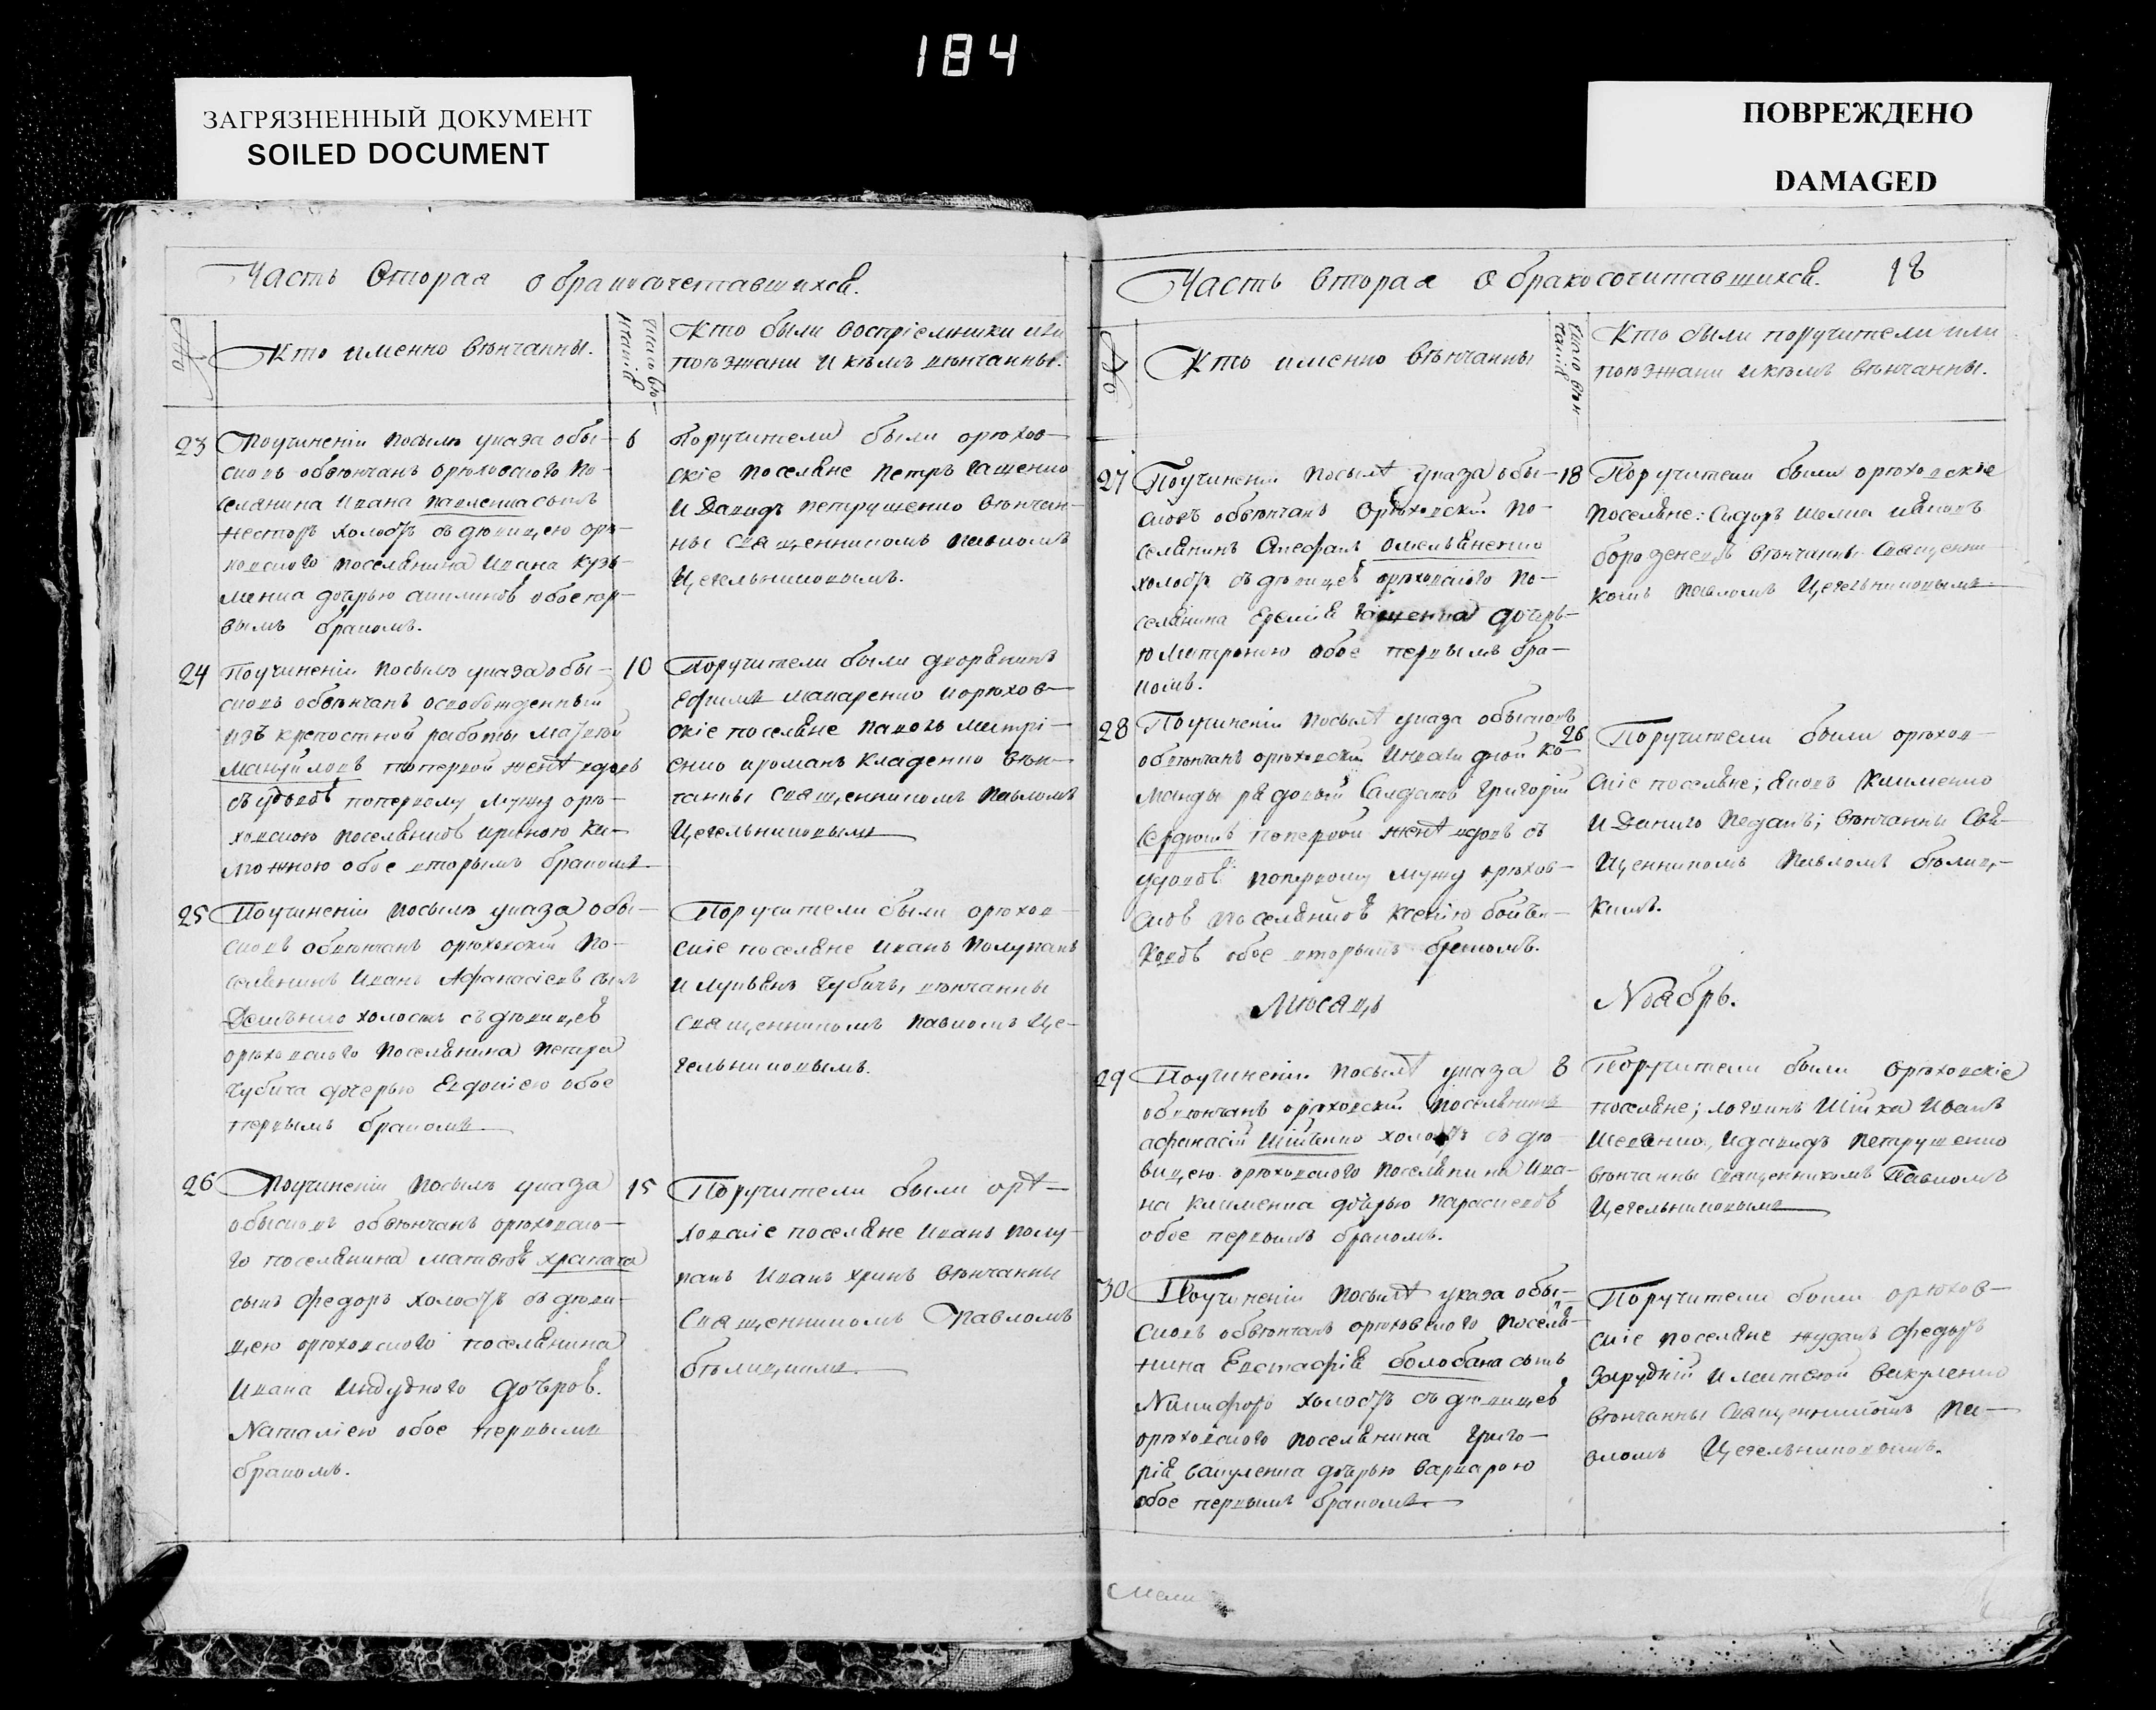 184
ЗАГРЯЗНЕННЫЙ ДОКУМЕНТ
SOILED DOCUMENT
ПОВРЕЖДЕНО
DAMAGED
Часть Вторая о бракосочетавшихся.
№
Кто именно венчанны.
Кто были воспріемники или
поезжани и кемъ венчанны.
23 Поучиненіи посылъ указа обы- 6
сковъ обвѣнчанъ орѣховского по-
селянина Ивана Павленка сынъ
Несторъ холостъ съ девицею орѣ-
ховского поселянина Ивана Кузь-
менка дочерью обое пер-
вымъ бракомъ.
Поручители были орѣхов-
скіе поселяне Петръ Гащенко
и Давидъ Петрушенко венчан-
ны священникомъ Павломъ
Цегельниковымъ.
24 Поучиненіи посылъ указа обы- 10
сковъ обвѣнчанъ освобожденный
изъ крепостной работы
по первой женѣ вдовъ
съ удовою по первому мужу орѣ-
ховскою поселянкою Ириною
обое вторымъ бракомъ
Поручители были дворянинъ
Ефимъ Макаренко и орѣхов-
скіе поселяне Павелъ Митрі-
енко и Романъ Кладенко вен-
чанны священникомъ Павломъ
Цегельниковымъ
25 Поучиненіи посылъ указа обы-
сковъ обвѣнчанъ орѣховскій по-
селянинъ Иванъ Афанасіевъ сынъ
холостъ съ девицею
орѣховского поселянина Петра
Чубича дочерью Евдокіею обое
первымъ бракомъ
Поручители были орѣхов-
скіе поселяне Иванъ Полупанъ
и Лукьянъ Чубичъ, венчанны
священникомъ Павломъ Це-
гельниковымъ.
26 Поучиненіи посылъ указа 15
обысковъ обвѣнчанъ орѣховско-
го поселянина Матвея Храпача
сынъ Федоръ холостъ съ деви-
цею орѣховского поселянина
Ивана дочеров.
Наталіею обое первымъ
бракомъ.
Поручители были орѣ-
ховскіе поселяне Иванъ Полу-
панъ Иванъ Хринъ венчанны
Священникомъ Павломъ
Белицкимъ.
Часть вторая о бракосочитавшихся. 18
№
Кто именно венчанны
Кто были поручители или
поезжани и кемъ венчанны.
27 Поучиненіи посылѣ указа обы- 18
сковъ обвѣнчанъ Орѣховскій по-
селянинъ Стефанъ Омельяненко
холостъ съ девицею орѣховского по-
селянина Еремія Гащенка дочерь-
ю Матроною обое первымъ бра-
комъ.
Поручители были орѣховскіе
поселяне: Сидоръ
венчанны Священни-
комъ Павломъ Цегельниковымъ
28 Поучиненіи посылѣ указа обысковъ 26
обвѣнчанъ орѣховской Инвалидной ко-
манды рядовый Салдатъ Григорій
Сердюкъ по первой женѣ вдовъ съ
удовою по первому мужу орѣхов-
скою поселянкою Ксеніею
обое вторымъ бракомъ.
Поручители были орѣхов-
скіе поселяне; Яковъ Клименко
и Данило Педанъ; венчанны Свя-
щенникомъ Павломъ Белиц-
кимъ.
Мѣсяцъ Ноабрь.
29 Поучиненіи посылѣ указа 8
обвѣнчанъ орѣховскій поселянинъ
афанасій Шійченко холостъ съ де-
вицею орѣховского поселянина Ива-
на Клименка дочерью Параскевою
обое первымъ бракомъ.
Поручители были Орѣховскіе
поселяне; Логвинъ Шійка Иванъ
и давидъ Петрушенко
венчанны священникомъ Павломъ
Цегельниковымъ
30 Поучиненіи посылѣ указа обы-
сковъ обвѣнчанъ орѣховского поселя-
нина Евстафія Болобана сынъ
Никифоръ холостъ съ девицею
орѣховского поселянина Григо-
рія Вакуленка дочерью Варварою
обое первымъ бракомъ.
Поручители были орѣхов-
скіе поселяне Федоръ
Зарудній и Матвей Вакуленко
венчанны Священникомъ Па-
вломъ Цегельниковымъ.